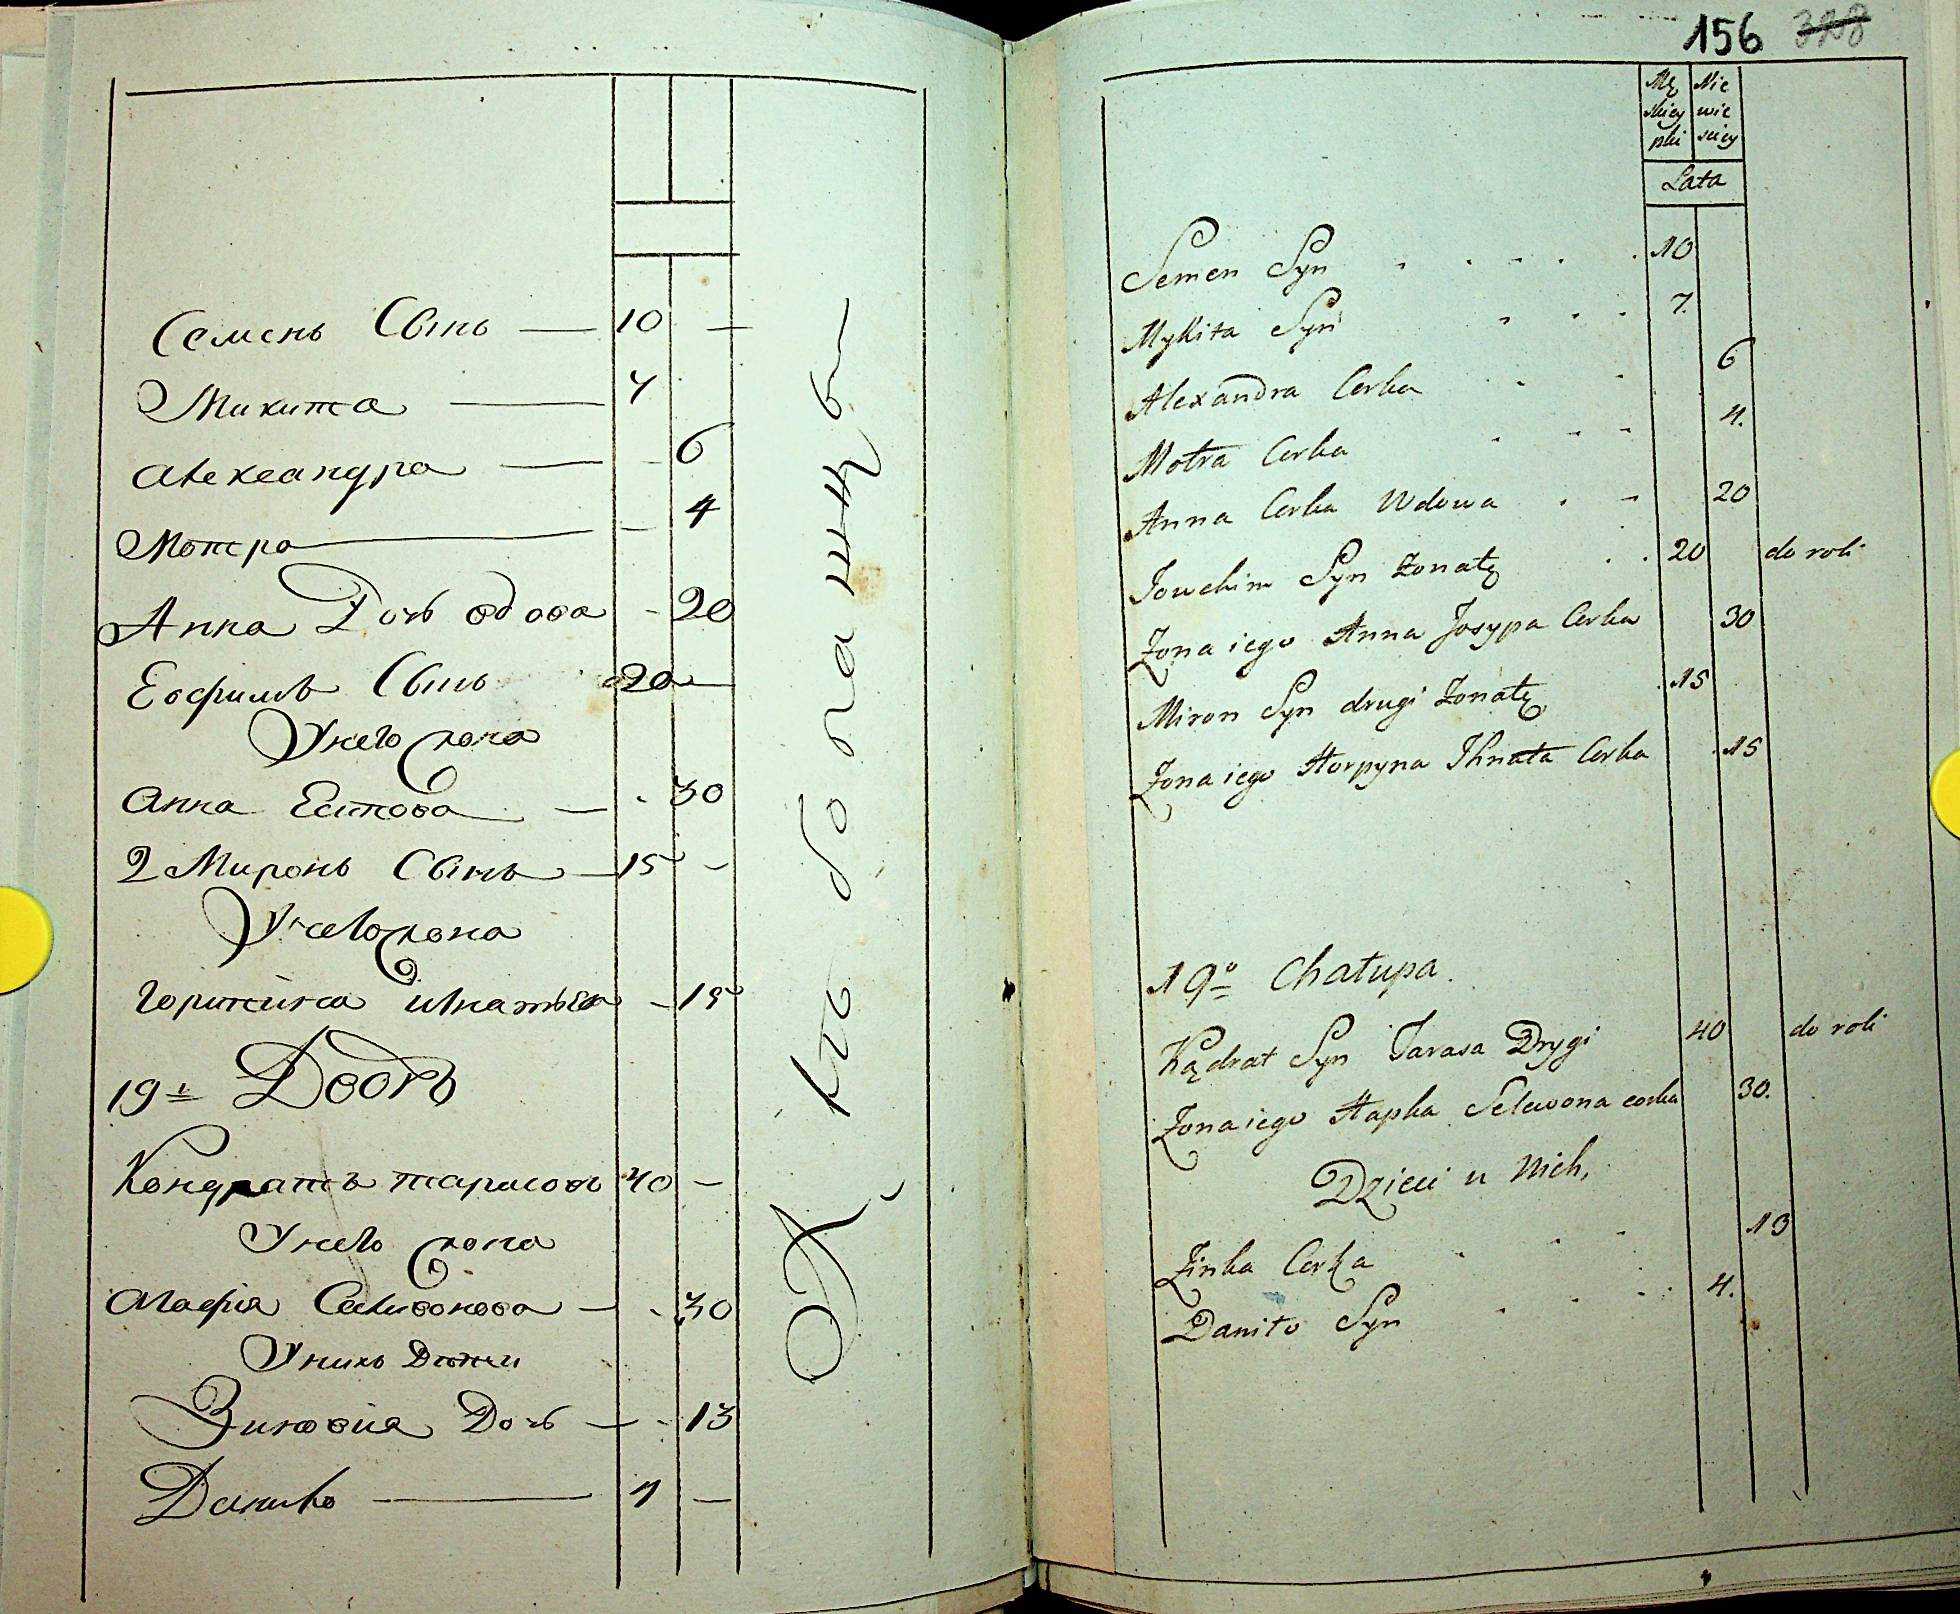 Семенъ Сынъ — 10 —
Микита — 7
Александра — - 6
Мотра — - 4
Анна Дочь вдова - 20
Еофимъ Сынъ 20 —
У него жона
Анна Есипова — - 30
2 Миронъ Сынъ — 15 -
У него жона
Горпина Игнатьва - 15
19й Дворъ
Кондратъ тарасовъ 40 -
У него жона
Агафия Селивонова — - 30
У нихъ Дѣти
Зиновия Дочь — - 13
Данило — 4 —
156 328
Mę Nie
skiey wie
płci sciey
Lata
Semen Syn 10
Mykita Syn 7.
Alexandra Corka 6
Motra Corka 4.
Anna Corka Wdowa 20
Jowchim Syn żonaty 20 do roli
Żona iego Anna Josypa Corka 30
Miron Syn drugi żonaty 15
Żona iego Horpyna Ihnata Corka 15
19o Chałupa.
Kądrat Syn Tarasa Drygi 40 do roli
Żona iego Hapka Selewona corka 30.
Dzieci u Nich,
Zinka Corka 13
Daniło Syn 4.